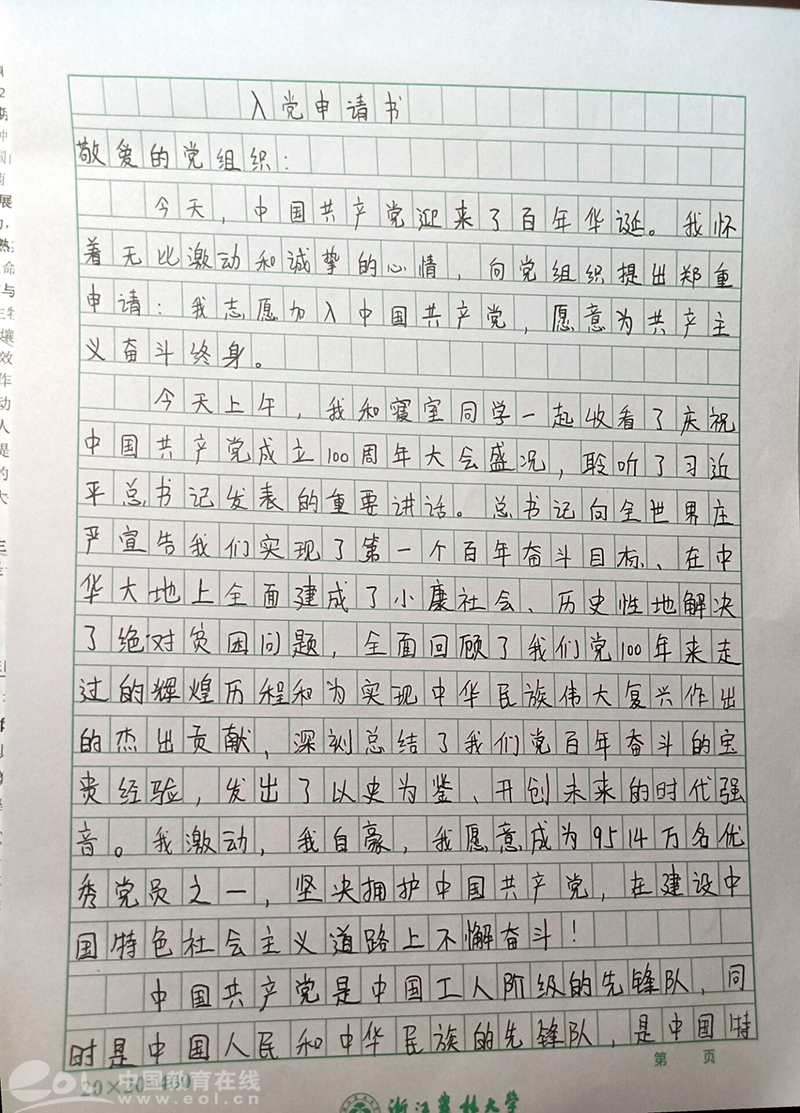 入党申请书
敬爱的党组织：
今天，中国共产党迎来了百年华诞。我怀
着无比激动和诚挚的心情，向党组织提出郑重
申请：我志愿加入中国共产党，愿意为共产主
义奋斗终身。
今天上午，我和寝室同学一起收看了庆祝
中国共产党成立100周年大会盛况，聆听了习近
平总书记发表的重要讲话。总书记向全世界庄
严宣告我们实现了第一个百年奋斗目标、在中
华大地上全面建成了小康社会、历史性地解决
了绝对贫困问题，全面回顾了我们党100年来走
过的辉煌历程和为实现中华民族伟大复兴作出
的杰出贡献，深刻总结了我们党百年奋斗的宝
贵经验，发出了以史为鉴、开创未来的时代强
音。我激动，我自豪，我愿意成为9514万名优
秀党员之一，坚决拥护中国共产党，在建设中
国特色社会主义道路上不懈奋斗！
中国共产党是中国工人阶级的先锋队，同
时是中国人民和中华民族的先锋队，是中国特
第 页
20×20=400
eol 中国教育在线
www.eol.cn
浙江农林大学
展
熟
命
与
壤
效
作
动
人
是
的
大